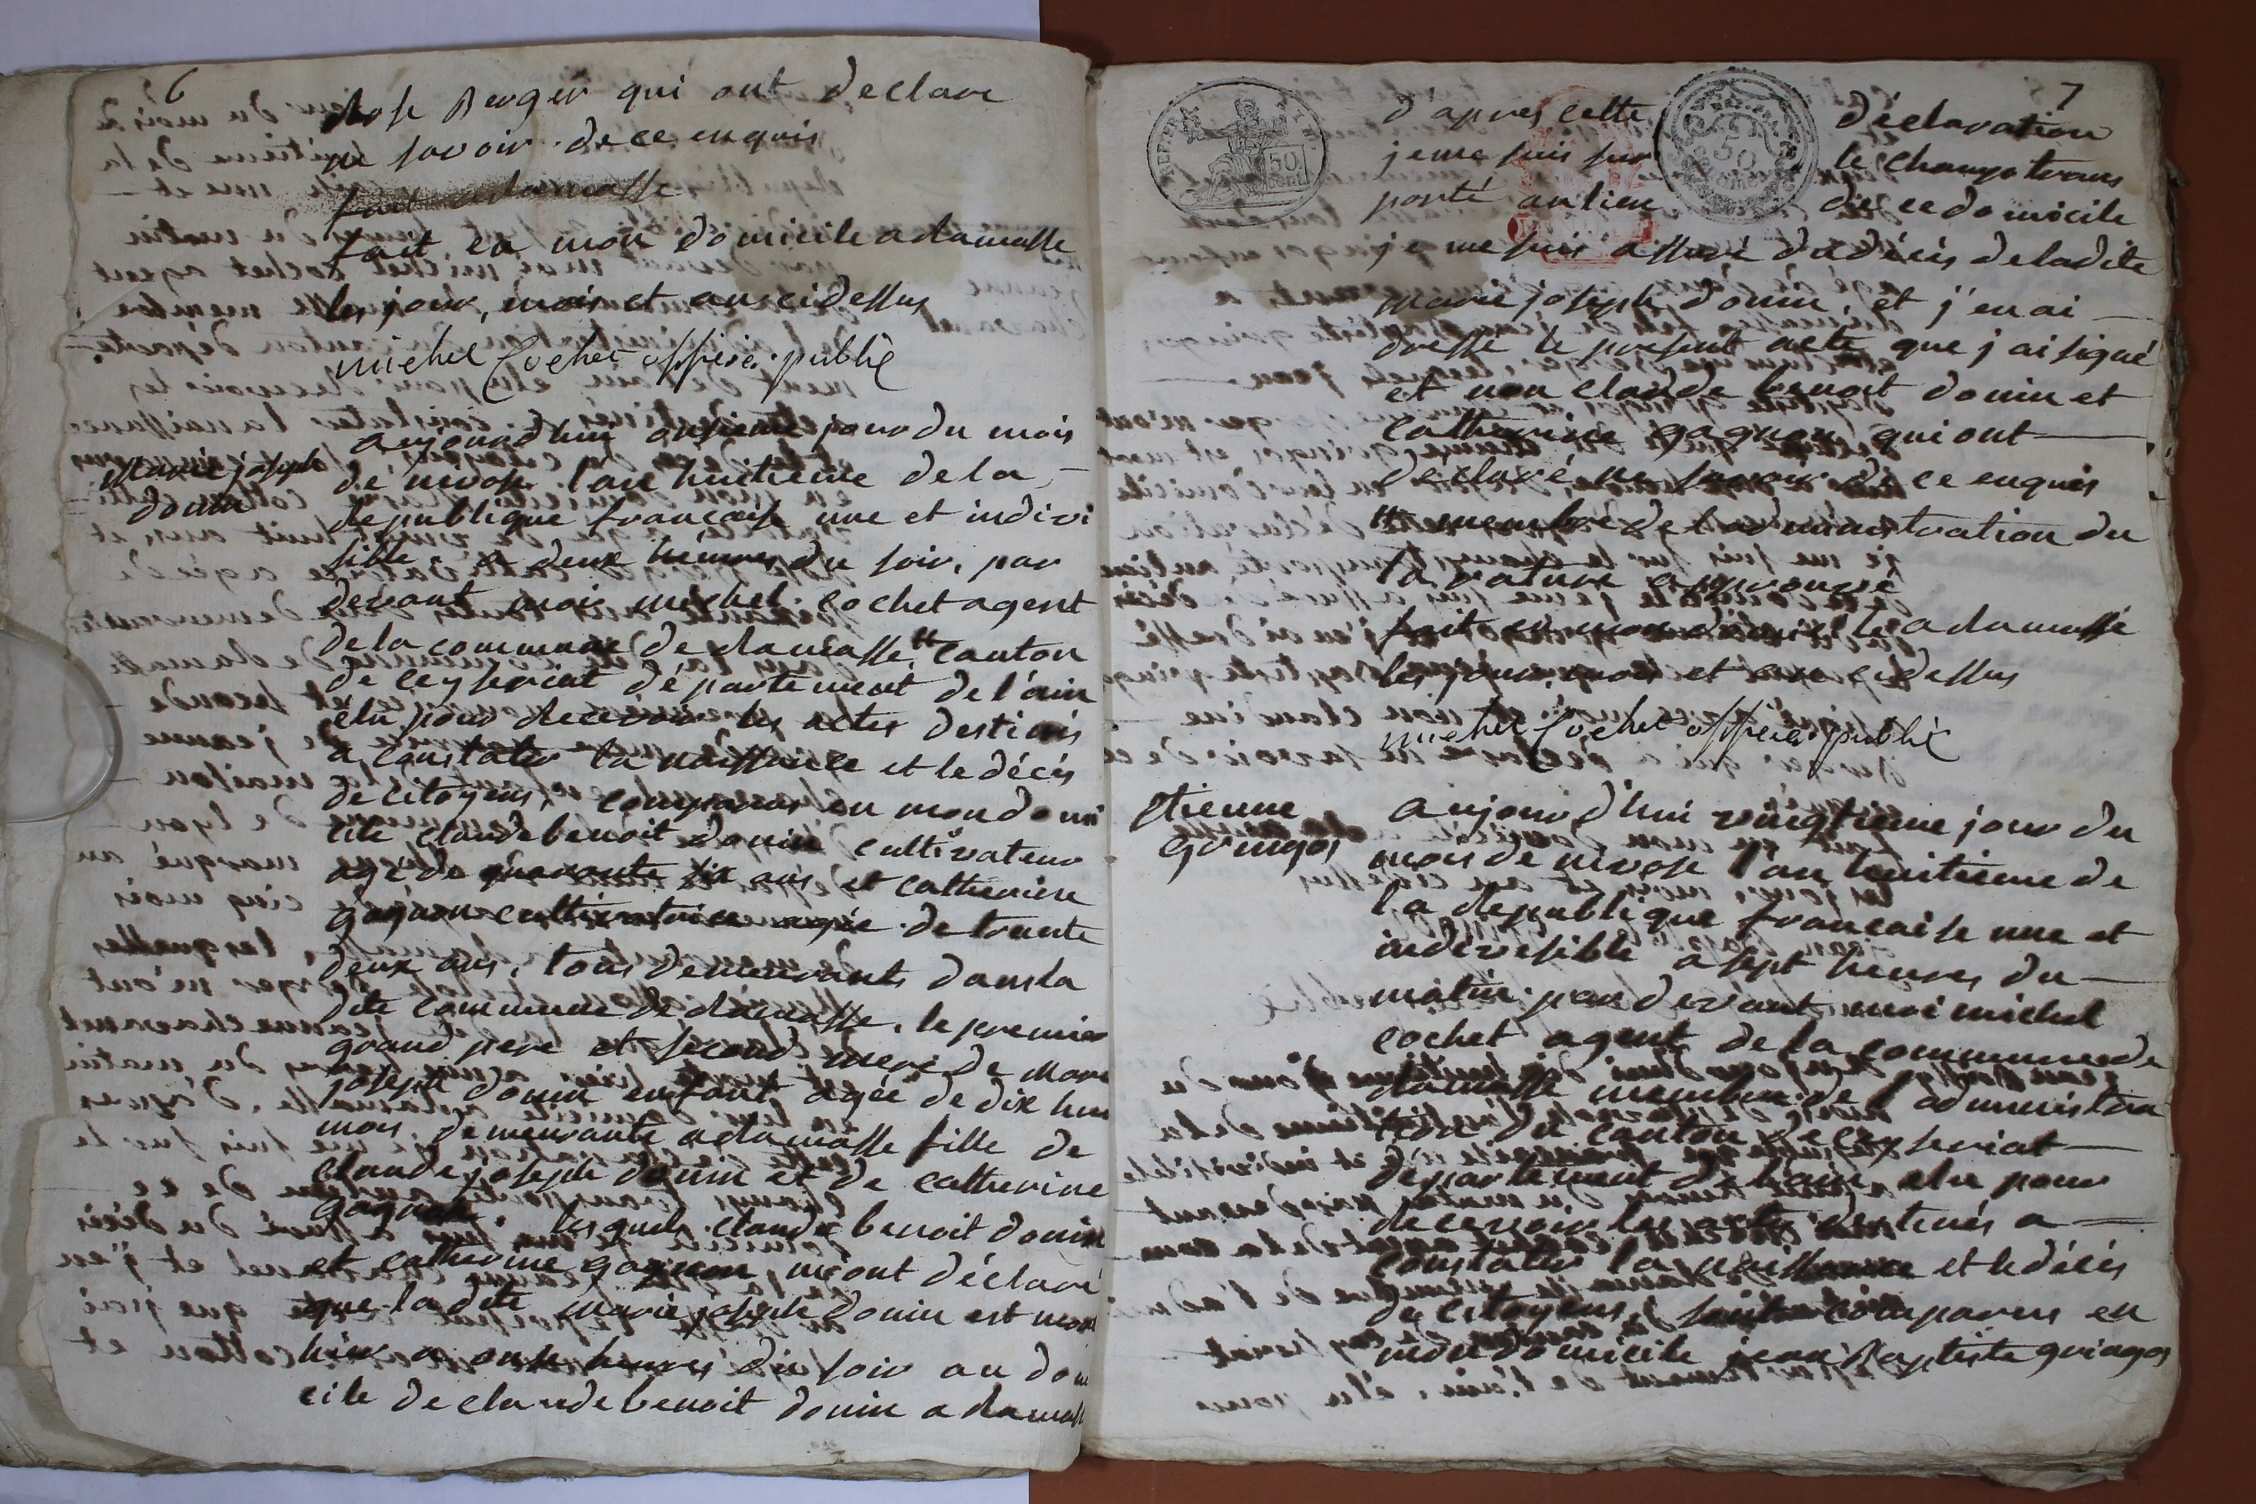 6
Rose Berger qui ont declare
ne savoir. de ce enquis
fait a dlamasse
fait en mon domicile a dlamasse
les jour, mois et an cidessus
michel Cochet officier publiè
marie joseph
donin
aujourd'hui onsieme jour du mois
de nivose l'an huitieme de la
depublique francaise une et indivi
sible a deux heures du soir, par
devant moi michel cochet agent
de la commune de dlamasse # canton
de ceyseriat département de l'ain
elu pour decevoir les actes destinés
a constater la naissance et le décés
de citoyens, comparus en mon domi
cile claude benoit donin cultivateur
agé de quarante six ans et catherine
gagnon cultivatrice agée de trante
deux ans, tous demeurants dans la
dite commune de dlamasse, le premier
grand pere et second mere de marie
joseph donin enfant agée de dix huit
mois, demeurante a dlamasse fille de
claude joseph donin et de catherine
gagnon. lesquels claude benoit donin
et catherine gagnon m'ont déclaré
que ladite marie joseph donin est morte
hier a onse heures du soir au domi
cile de claude benoit donin a dlamasse
7
REP FRA
50 cent
50
d'apres cette déclaration
je me suis sur le champ trans
porté au lieu de ce domicile
je me suis assuré du décés de ladite
marie joseph donin, et j'en ai
dressé le present acte que j'ai signé
et non claude benoit donin et
catherine gagnon qui ont
déclaré ne savoir de ce enquis
# membre de l'administration du
la rature approuvée
fait en mon domicile a dlamasse
les jour, mois et an cidessus
michel Cochet officier publiè
Etienne
guingos
aujourd'hui vingtieme jour du
mois de nivose l'an huitieme de
la depublique francaise une et
indivisible a sept heures du
matin. par devant moi michel
cochet agent de la commune de
dlamasse membre de l'administra
tion du canton de ceyseriat
departement de l'ain elu pour
decevoir les actes destinés a
constater la naissance et le décés
de citoyens, sont comparus en
mon domicile jean Baptiste guingos